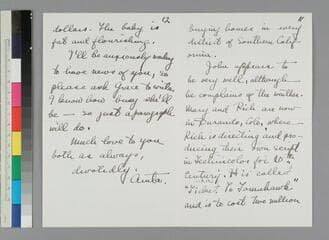 12
dollars. The baby is
fat and flourishing.
I'll be anxiously waiting
to have news of you, so
please ask Grace to write.
I know how busy she'll
be — so just a paragraph
will do.
Much love to you
both as always,
devotedly,
Anita.
11
buying homes in every
district of Southern Calif-
ornia.
John appears to
be very well, although
he complains of the weather.
Mary and Rich are now
in Durando, Colo, where
Rich is directing and pro-
ducing their own script
in Technicolor for 20th
Century. It is called
"Ticket To Tomahawk"
and is to cost two million